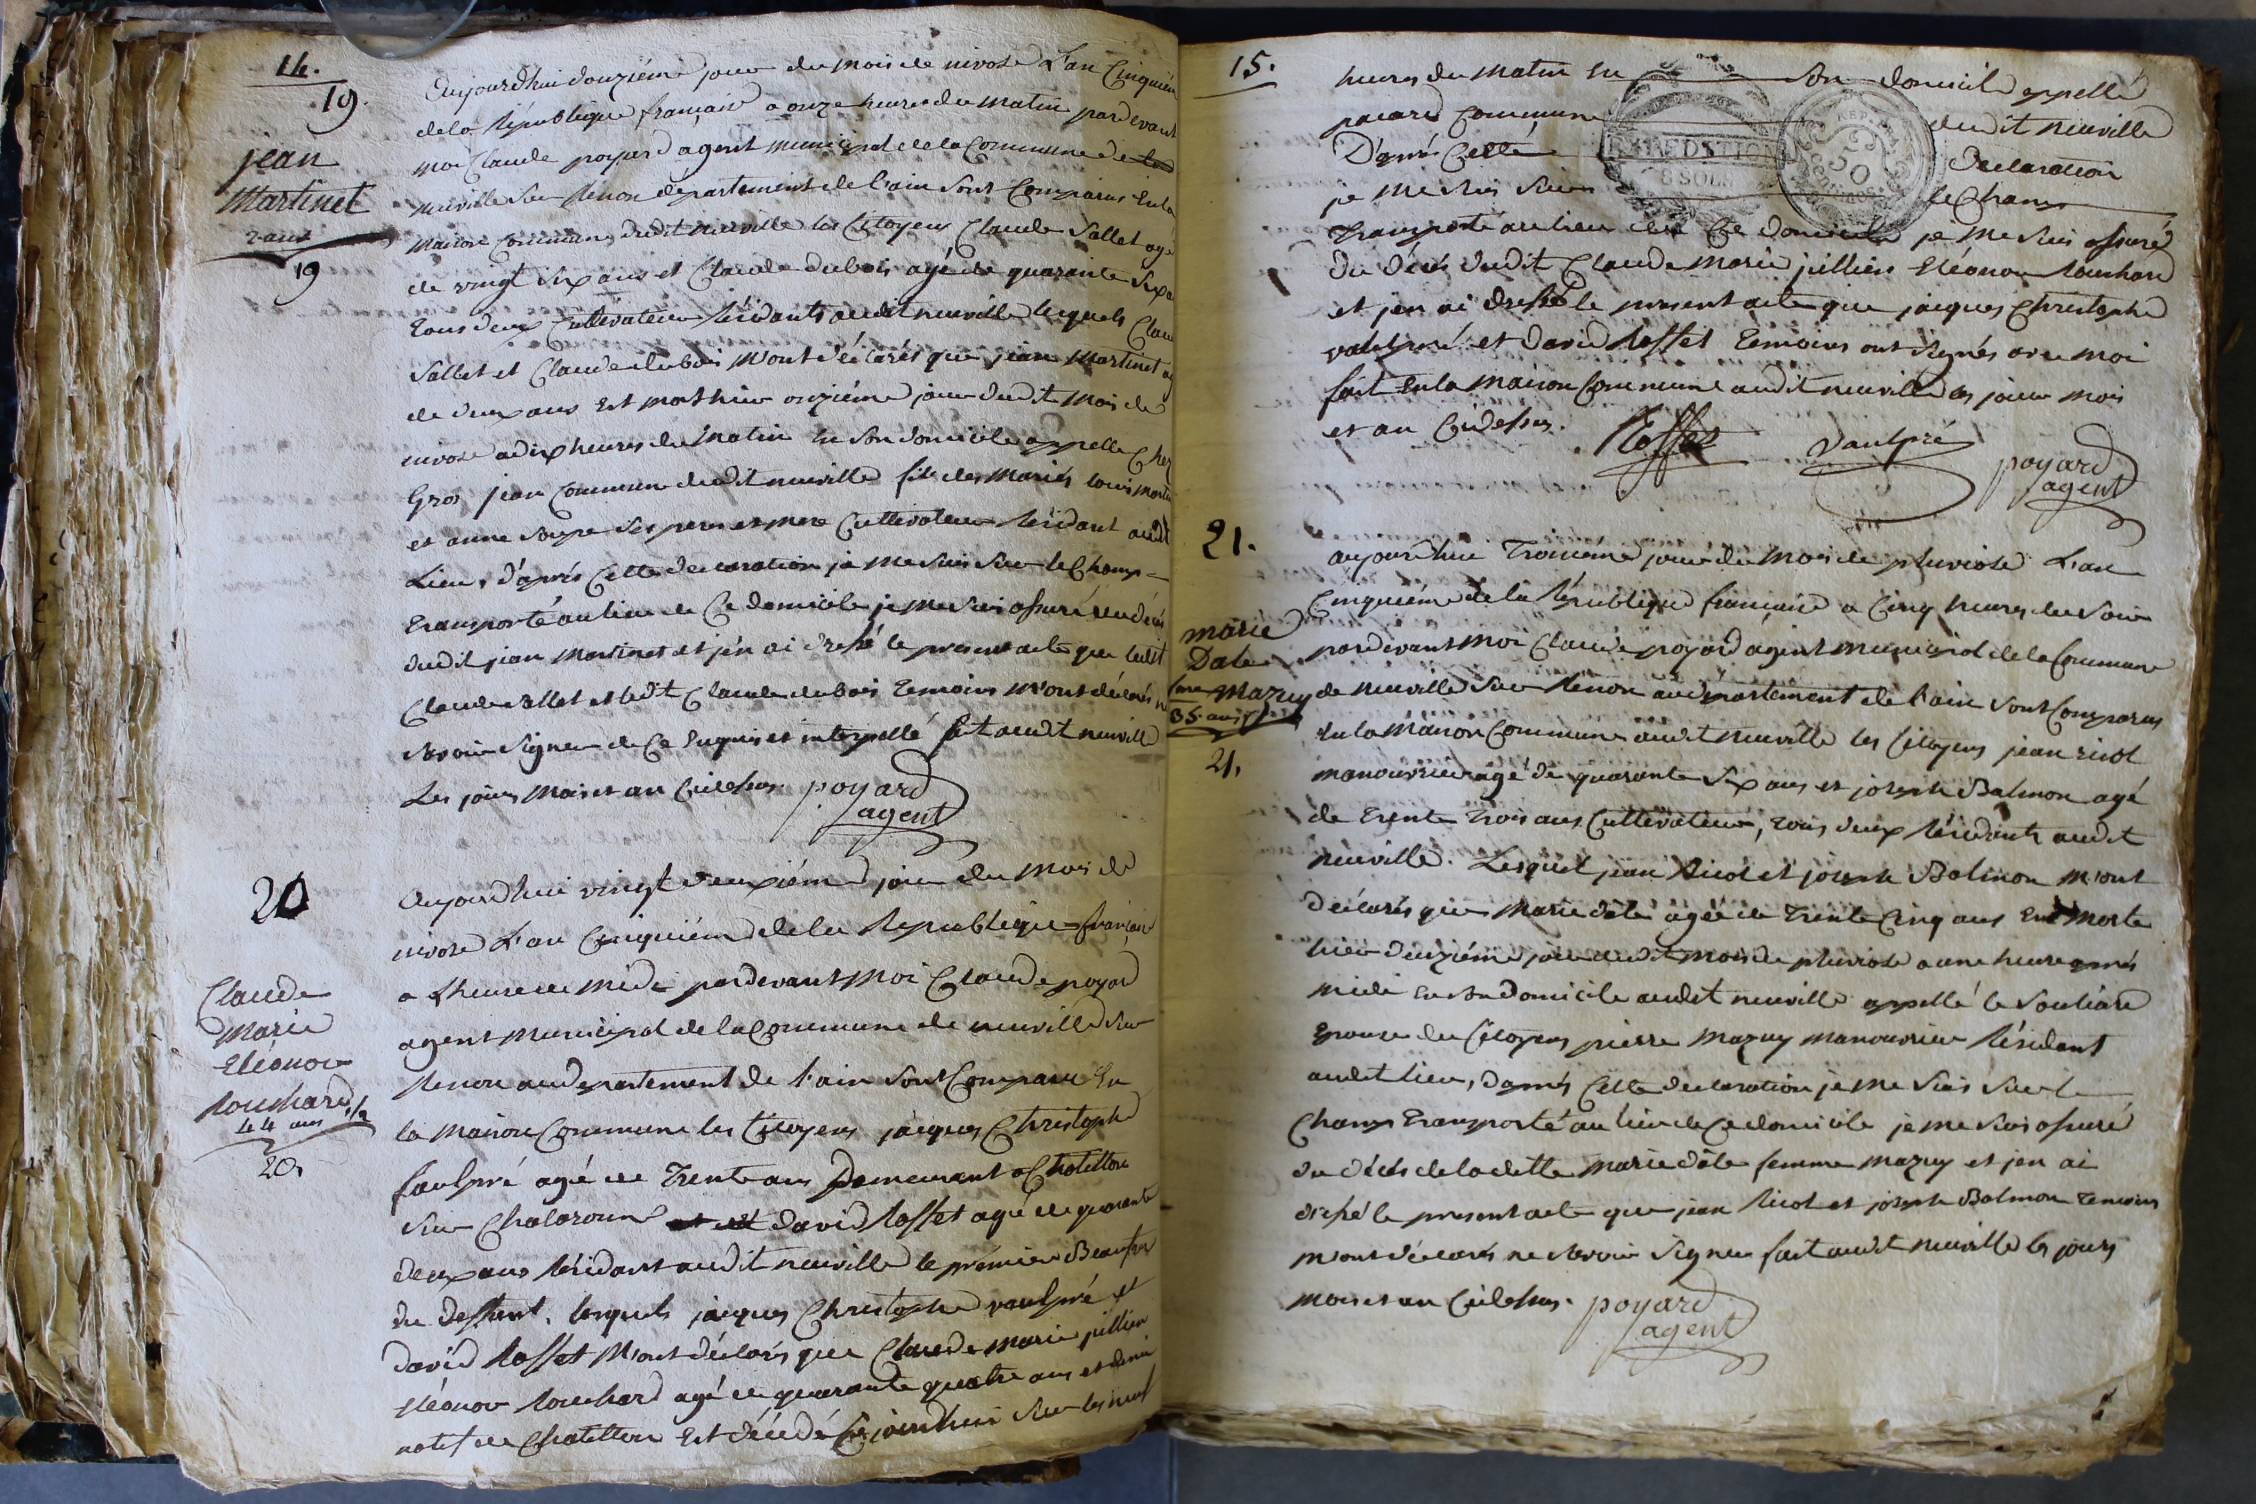 14.
19.
jean
Martinet
2 ans
19
aujourdhui douziéme jour du mois de nivose L'an Cinquiém
de la République française a onze heures du matin pardevant
moi Claude poyard agent municipal de la Commune de
neuville sur Renon département de l'ain sont Comparus En la
maison Commune dudit neuville les Citoyens Claude Sallet agé
de vingt six ans et Claude dubois agé de quarante six a
tous deux Cultivateurs Résidants audit neuville lesquels Clau
Sallet et Claude dubois m'ont déclarés que jean Martinet a
de deux ans Est mort hier onziéme jour dudit mois de
nivose a dix heures du matin En son domicile appelle Chez
Gros jean Commune dudit neuville fils des mariés louis mart
et anne Soupe ses pere et mere Cultivateurs Résidant audit
Lieu, d'aprés Cette declaration je me suis sur le Champ
transporté au lieu de Ce domicile je me suis assuré du décés
dudit jean Martinet et j'en ai dressé le present acte que ledit
Claude Sallet et ledit Claude dubois temoins m'ont déclarés n
savoir signer de Ce Enquis et interpellé fait audit neuville
Les jours mois et an Cidessus. poyard
agent
20
Claude
Marie
Eléonor
Rouchard
44 ans 1/2
20.
aujourdhui vingt deuxiéme jour du mois de
nivose L'an Cinquiéme de la Republique français
a L'heure de midi pardevant moi Claude poyard
agent municipal de la Commune de neuville sur
Renon au departement de l'ain sont Comparu En
la maison Commune les Citoyens jacques Christophe
Vaulpré agé de trente ans Demeurant a Chatillon
sur Chalaronne et david Rosset agé de quarante
deux ans Résidant audit neuville le premier Beaufrere
du deffunt. lesquels jacques Christophe vaulpré et
david Rosset m'ont déclarés que Claude marie jullien
Eléonor Rouchard agé de quarante quatre ans et demi
natif de Chatillon Est décédé Ce jourdhui sur les neuf
15.
heures du matin En son domicile appellé
pacard Commune dudit neuville
D'aprés Cette declaration
je me suis sur le Champ
transporté au lieu de Ce domicile je me suis assuré
du décés dudit Claude marie jullien Eléonor Rouchard
et jen ai dressé le present acte que jacques Christophe
vaulpré et david Rosset temoins ont signés avec moi
fait En la maison Commune audit neuville les jour mois
et an Cidessus.
Rosset Vaulpré poyard
agent
EXPEDITION
8 SOLS
REP. FRA.
50
CENTIMES
21.
marie
Date
fme Mazuy
35 ans
21.
aujourdhui troisiéme jour du mois de pluviose L'an
Cinquiéme de la République française a Cinq heures du soir
pardevant moi Claude poyard agent municipal de la Commune
de neuville sur Renon au département de l'ain sont Comparus
En la maison Commune audit neuville les Citoyens jean ricol
manouvrier agé de quarante six ans et joseph Balmon agé
de trente trois ans Cultivateur, tous deux Résidants audit
neuville. Lesquel jean Ricol et joseph Balmon m'ont
déclarés que Marie date agée de trente Cinq ans Est morte
hier deuxiéme jour dudit mois de pluviose a une heure aprés
midi En son domicile audit neuville appellé le Souliard
Epouse du Citoyens pierre Mazuy manouvrier Résidant
audit lieu, d'aprés Cette declaration je me suis sur le
Champ transporté au lieu de Ce domicile je me suis assuré
du décés de la ditte Marie date femme mazuy et jen ai
dressé le present acte que jean Ricol et joseph Balmon temoins
m'ont déclarés ne savoir signer fait audit neuville les jours
mois et an Cidessus. poyard
agent